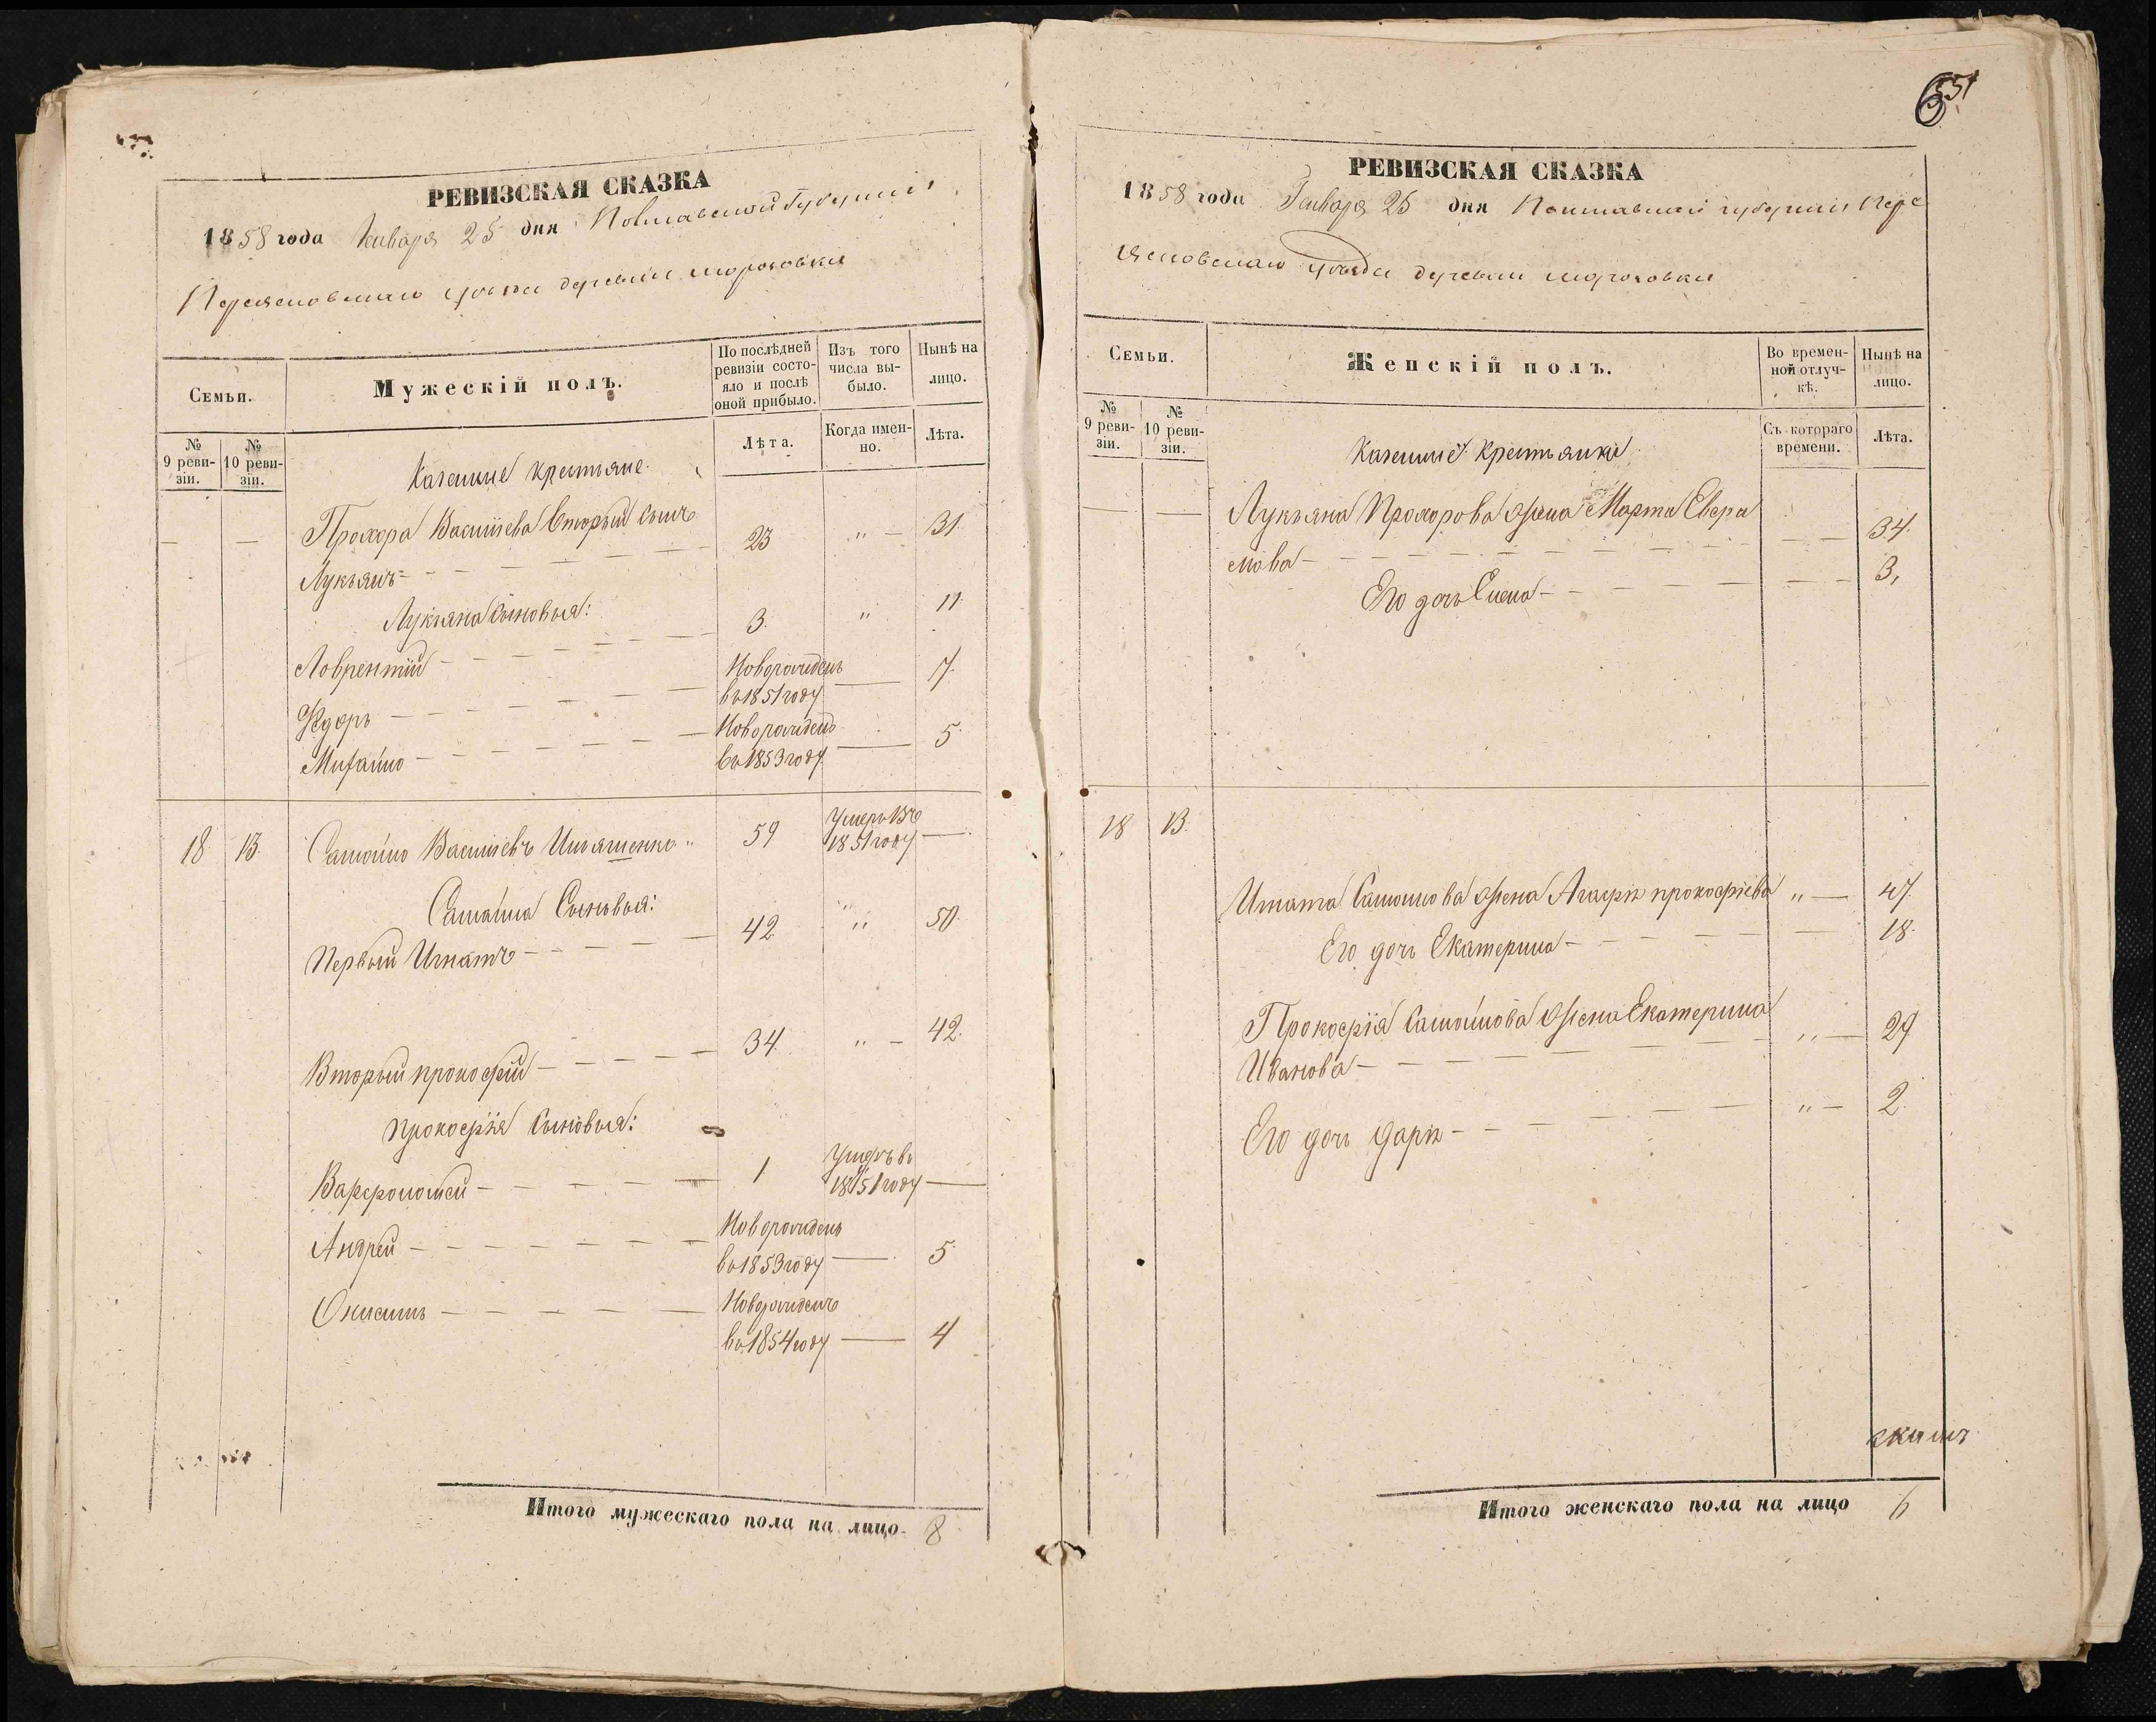 РЕВИЗСКАЯ СКАЗКА
1858 года Января 25 дня Полтавской Губернии
Переясловскаго уезда деревни
Семьи.
Мужескій полъ.
По послѣдней ревизіи состояло и послѣ оной прибыло.
Изъ того числа выбыло.
Нынѣ на лицо.
№ 9 ревизіи.
№ 10 ревизіи.
Лѣта.
Когда именно.
Лѣта.
Казенные крестьяне.
— — Прохора Васильева Вторый сынъ
Лукьянъ — 23 " — 31
Лукьяна сыновья:
Лаврентій — 3 " 11
Федоръ — Новорожденъ въ 1851 году — 7
Михайло — Новорожденъ въ 1853 году — 5
18 13 Самойло Васильевъ Ильяшенко 59 Умеръ въ 1851 году —
Самойла Сыновья:
Первый Игнатъ — 42 " 50
Вторый прокофій — 34 " — 42
прокофія Сыновья:
Варфоломей — 1 Умеръ въ 1851 году —
Андрей — Новорожденъ въ 1853 году — 5
Онисимъ — Новорожденъ въ 1854 году — 4
Итого мужескаго пола на лицо 8
651
РЕВИЗСКАЯ СКАЗКА
1858 года Января 25 дня Полтавской губернии Пере
ясловскаго уезда деревни
Семьи.
Женскій полъ.
Во временной отлучкѣ.
Нынѣ на лицо.
№ 9 ревизіи.
№ 10 ревизіи.
Съ котораго времени.
Лѣта.
Казенные Крестьянки
— — Лукьяна Прохорова жена Марта
— — 34
Его дочь Елена — — 3
18 13
Игната Самойлова жена Агафія прокофіева " — 47
Его дочь Екатерина — 18
Прокофія Самойлова жена Екатерина
Иванова — " — 29
Его дочь Дарія — " — 2
Итого женскаго пола на лицо 6